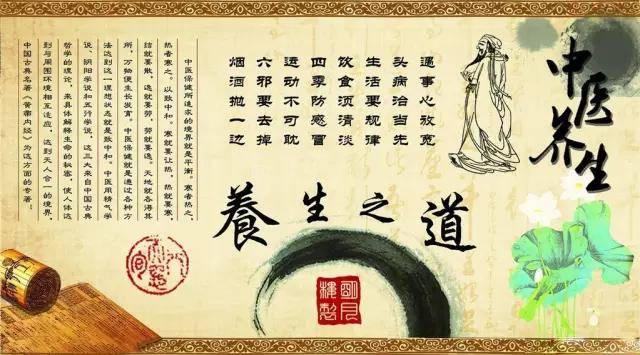 中医养生
遇事心放宽
头病治当先
生活要规律
饮食须清淡
四季防感冒
运动不可耽
六邪要去掉
烟酒抛一边
中医保健所追求的境界就是平衡。寒者热之，
热者寒之。以致中和。寒就要让热，热就要寒，
结就要散，逸就要劳，劳就要逸。天地就各得其
所，万物便生长发育。中医保健就是通过各种方
法达到这一理想状态就是致中和。中医用精气学
说、阴阳学说和五行学说，这三大来自中国古典
哲学的理论，来具体解释生命的秘密，使人体达
到与周围环境相互适应，达到天人合一的境界，
中国古典名著《黄帝内经》为这方面的专著。
養生之道